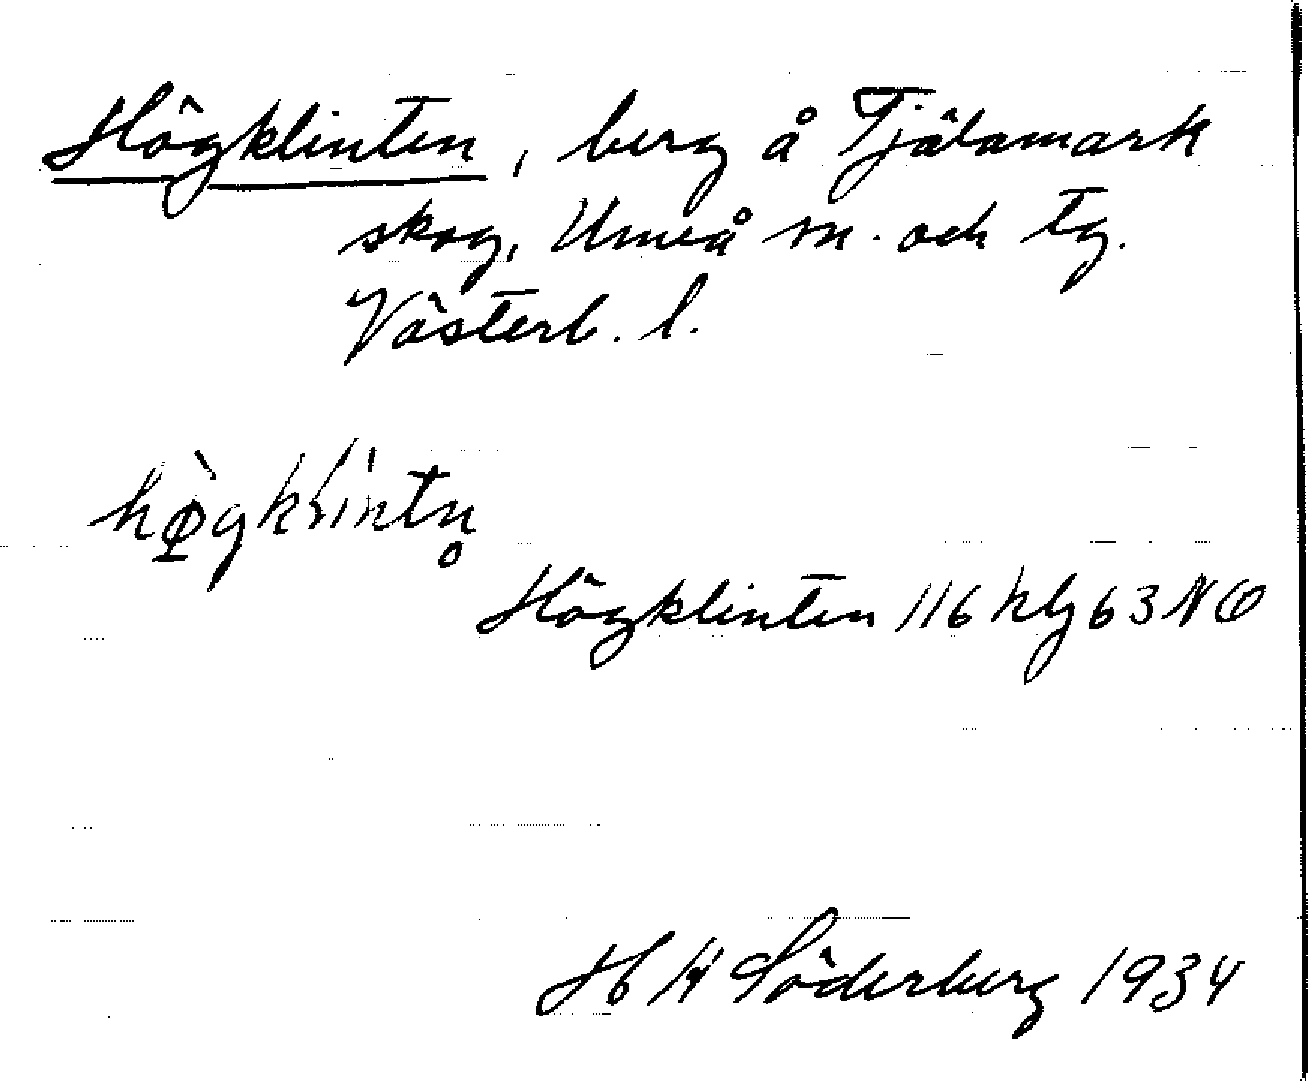 Högklinten, berg å Tjälamark
skog, Umeå m. och tg.
Västerb. l.
hø̀gklíntn̥
Högklinten 116 hlj 63 NO
H H Söderberg 1934